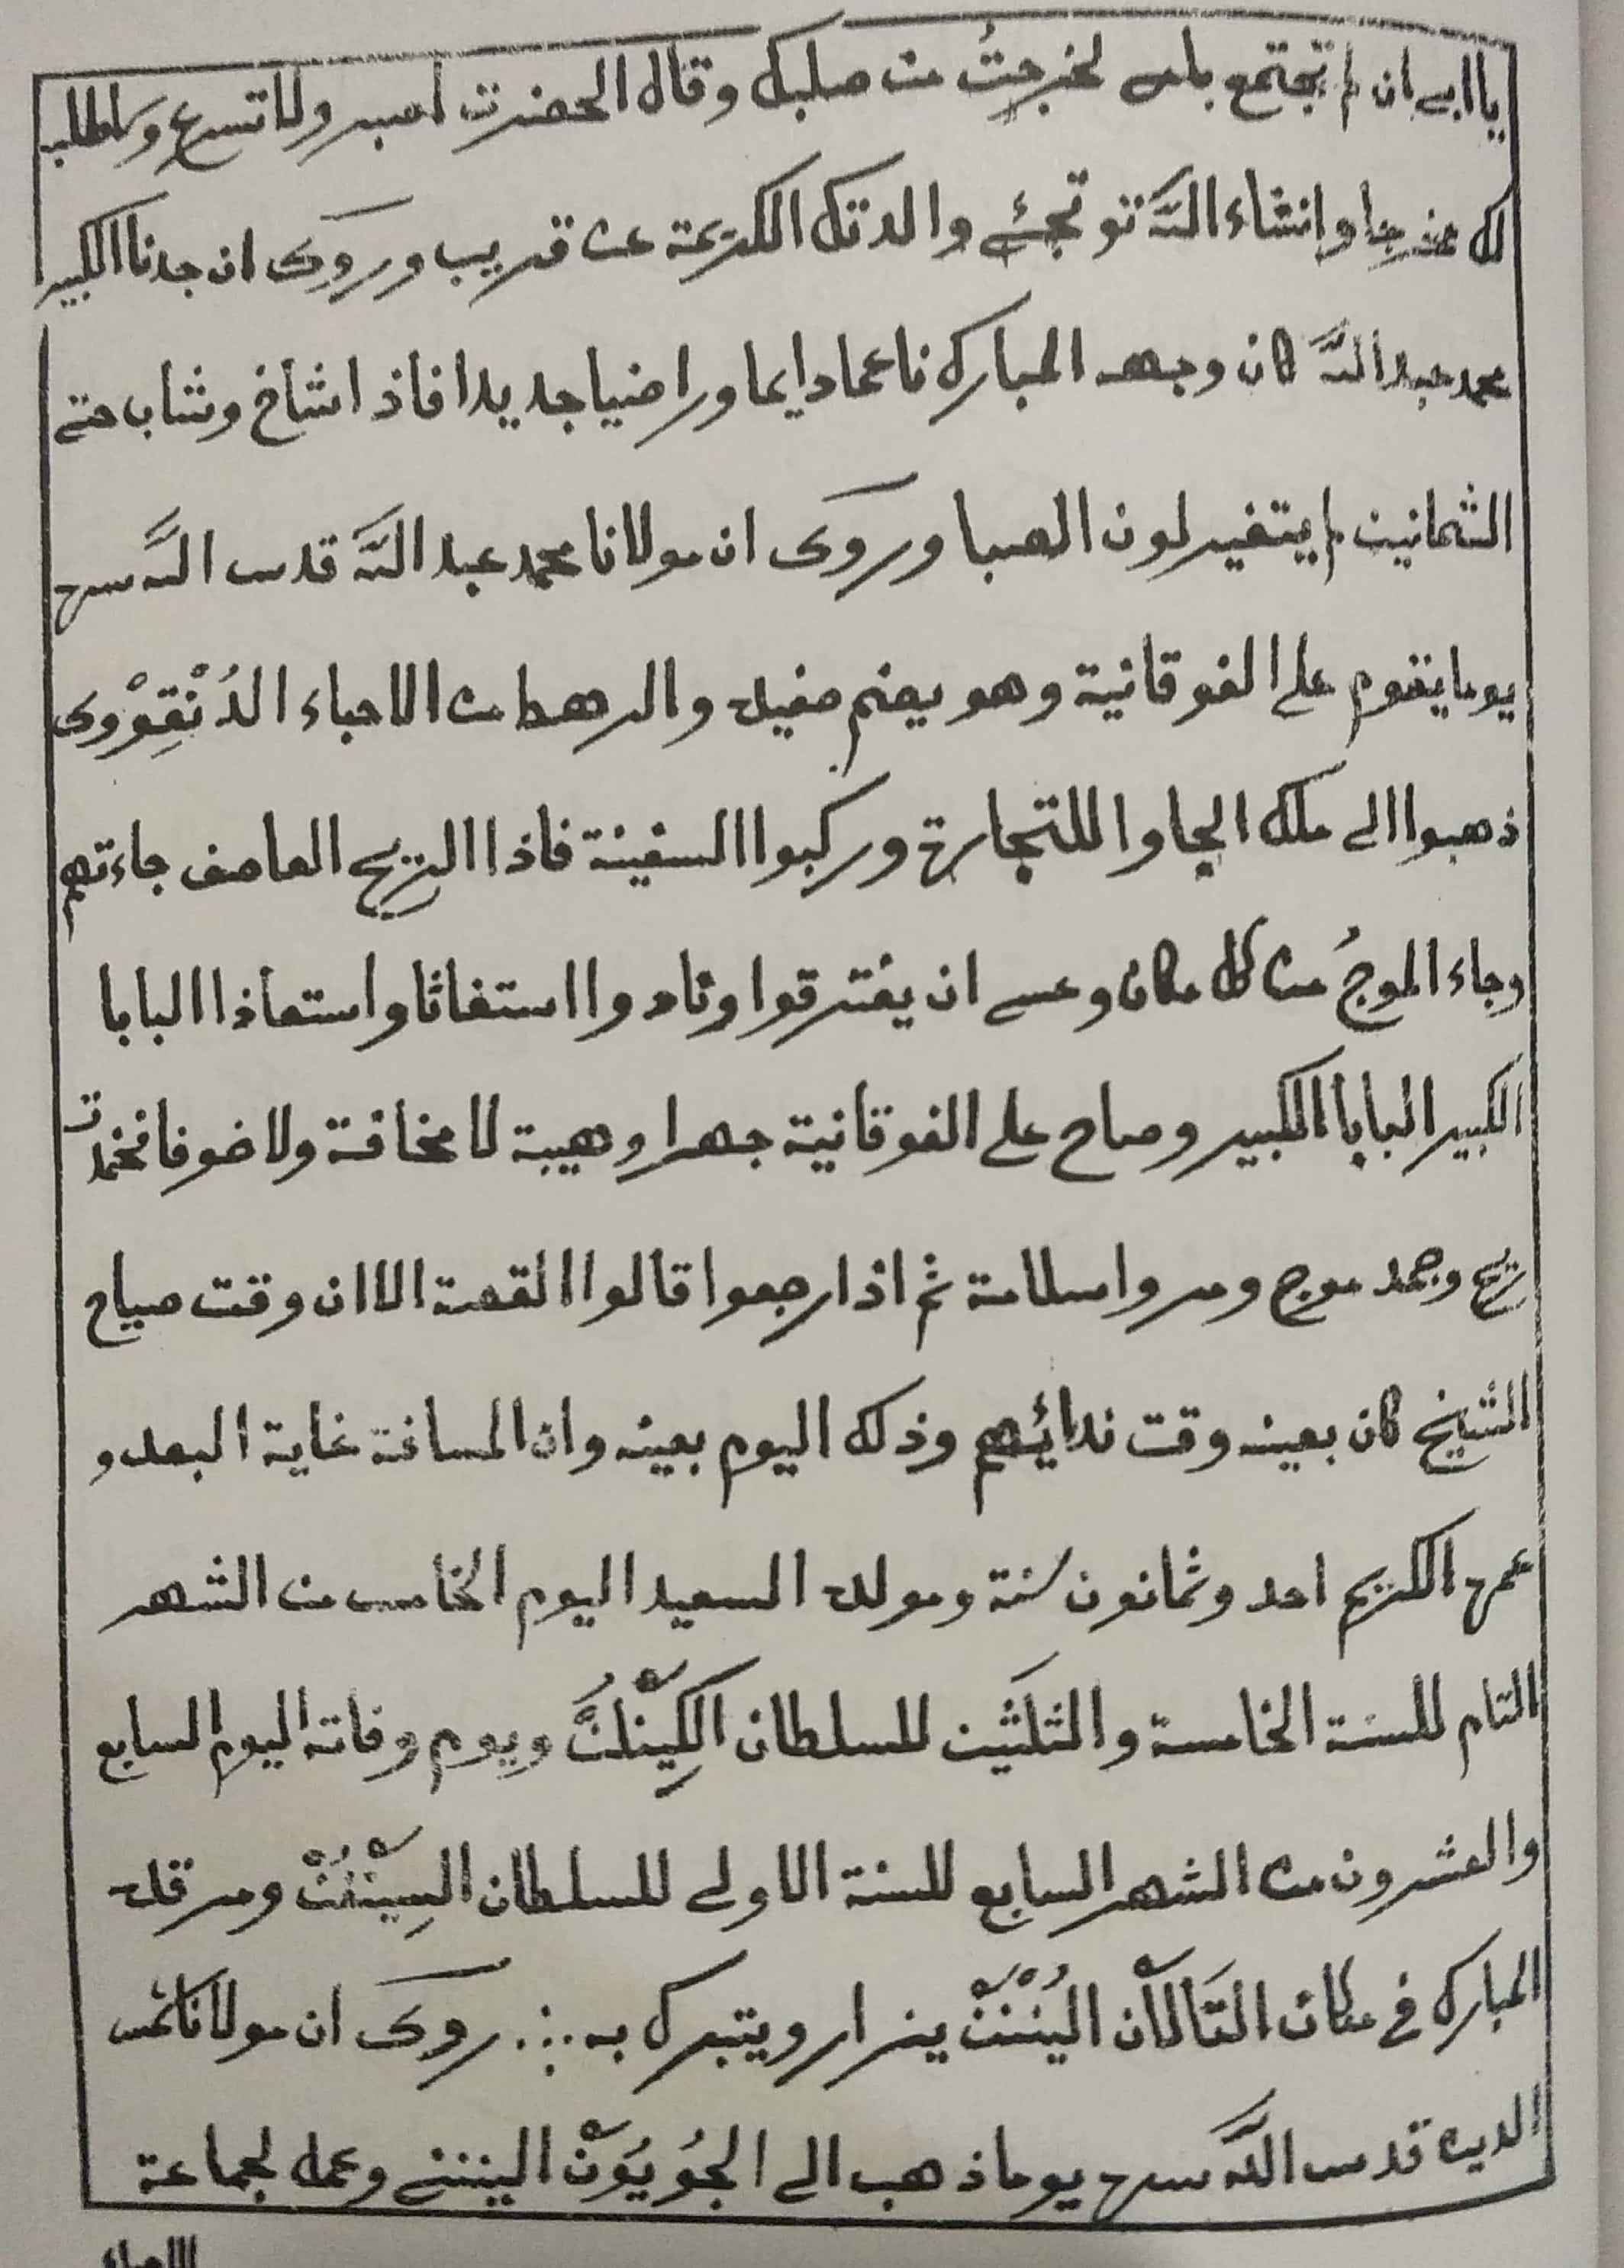 يا ابي ان لم تجتمع بامي لخرجتُ من صلبك وقال الحضرت اصبر ولا تسرع
لك مخرجا وانشاء اللّه تو تجئ والدتك الكريمة عن قريب وروى ان جدنا الكبير
محمد عبد اللّه كان وجهه المبارك ناعما دايما وراضيا جديدا فاذا شاخ وشاب حتى
الثمانين لم يتغير لون الصبا وروى ان مولانا محمد عبد اللّه قدس اللّه سره
يوما يقوم على الفوقانية وهو يعنم مفيده والرهط من الاحباء الدُنْقِوْوى
ذهبوا الى ملك الجاوا للتجارة وركبوا السفينة فاذا الريح العاصف جاءتهم
وجاء الموجُ من كل مكان وعسى ان يفترقوا ونادوا استغاثا واستعاذا البابا
الكبير البابا الكبير وصاح على الفوقانية جهرا وهيبة لا مخافة ولا خوفا فخمدت
ريح وجمد موج ومروا سلامة ثم اذا رجعوا قالوا القصة الا ان وقت صياح
الشيخ كان بعينه وقت ندائهم وذلك اليوم بعينه وان المسافة غاية البعد و
عمره الكريم احد وثمانون سنة ومولده السعيد اليوم الخامس من الشهر
التام للسنة الخامسة والثلثين للسلطان ويوم وفاته اليوم السابع
والعشرون من الشهر السابع للسنة الاولى للسلطان ومرقده
المبارك في مكان يزار ويتبرك به ∴ روى ان مولانا شمس
الدين قدس اللّه سره يوما ذهب الى اليننى وعمله لجماعة
الاحباء